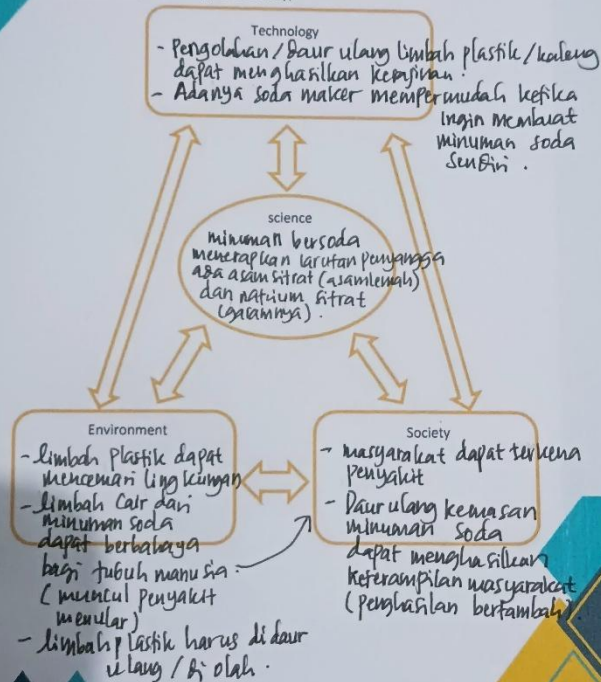 Technology
- Pengolahan/Daur ulang limbah plastik/kaleng
dapat menghasilkan kerajinan.
- Adanya soda maker mempermudah ketika
ingin membuat
minuman soda
sendiri.
science
minuman bersoda
menerapkan larutan penyangga
ada asam sitrat (asam lemah)
dan natrium sitrat
(garamnya).
Environment
- limbah plastik dapat
mencemari lingkungan
- limbah cair dari
minuman soda
dapat berbahaya
bagi tubuh manusia.
(muncul penyakit
menular)
- limbah plastik harus didaur
ulang/diolah.
Society
- masyarakat dapat terkena
penyakit
- Daur ulang kemasan
minuman soda
dapat menghasilkan
keterampilan masyarakat
(penghasilan bertambah).